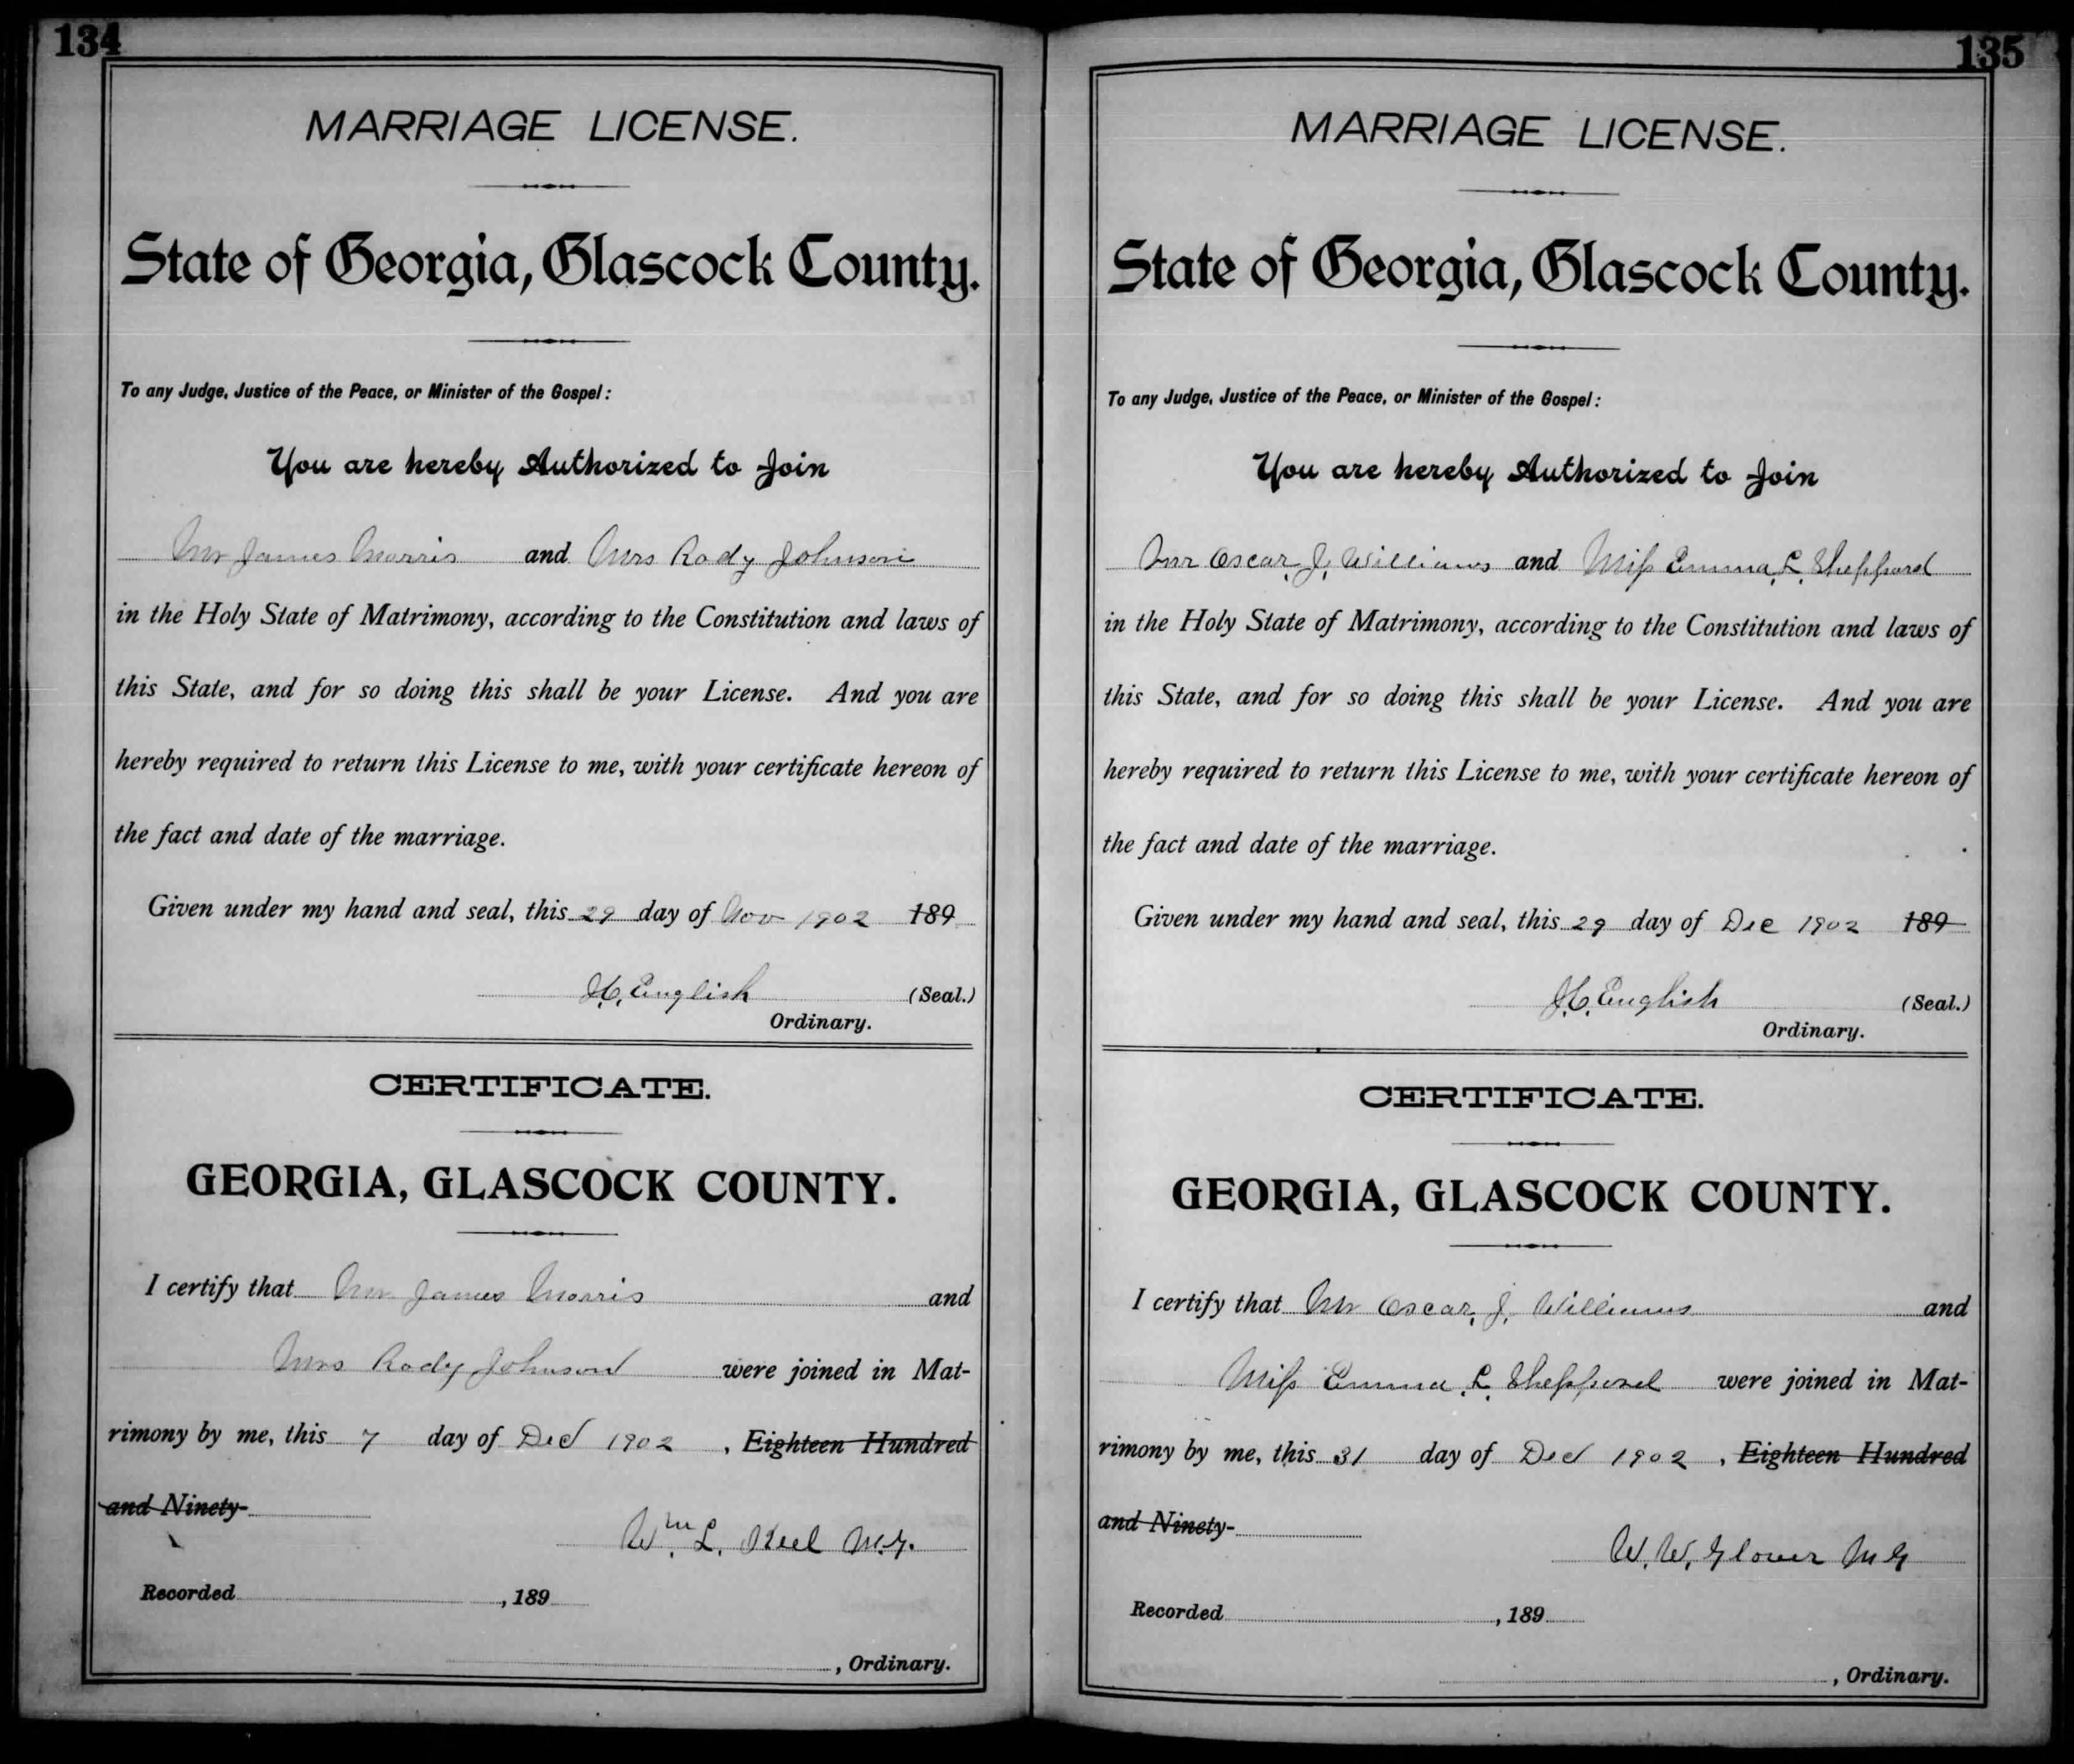 134
MARRIAGE LICENSE.
State of Georgia, Glascock County.
To any Judge, Justice of the Peace, or Minister of the Gospel:
You are hereby Authorized to Join
Mr James Morris and Mrs Rody Johnson
in the Holy State of Matrimony, according to the Constitution and laws of
this State, and for so doing this shall be your License. And you are
hereby required to return this License to me, with your certificate hereon of
the fact and date of the marriage.
Given under my hand and seal, this 29 day of Nov 1902 189
J.C. English (Seal.)
Ordinary.
CERTIFICATE.
GEORGIA, GLASCOCK COUNTY.
I certify that Mr James Morris and
Mrs Rody Johnson were joined in Mat-
rimony by me, this 7 day of Dec 1902, Eighteen Hundred
and Ninety-
Wm. L. Keel M.G.
Recorded , 189
, Ordinary.
135
MARRIAGE LICENSE.
State of Georgia, Glascock County.
To any Judge, Justice of the Peace, or Minister of the Gospel:
You are hereby Authorized to Join
Mr Oscar. J. Williams and Miss Emma. L. Sheppard
in the Holy State of Matrimony, according to the Constitution and laws of
this State, and for so doing this shall be your License. And you are
hereby required to return this License to me, with your certificate hereon of
the fact and date of the marriage.
Given under my hand and seal, this 29 day of Dec 1902 189
J.C. English (Seal.)
Ordinary.
CERTIFICATE.
GEORGIA, GLASCOCK COUNTY.
I certify that Mr Oscar. J. Williams and
Miss Emma. L. Sheppard were joined in Mat-
rimony by me, this 31 day of Dec 1902, Eighteen Hundred
and Ninety-
W. W. Glover M G
Recorded , 189
, Ordinary.